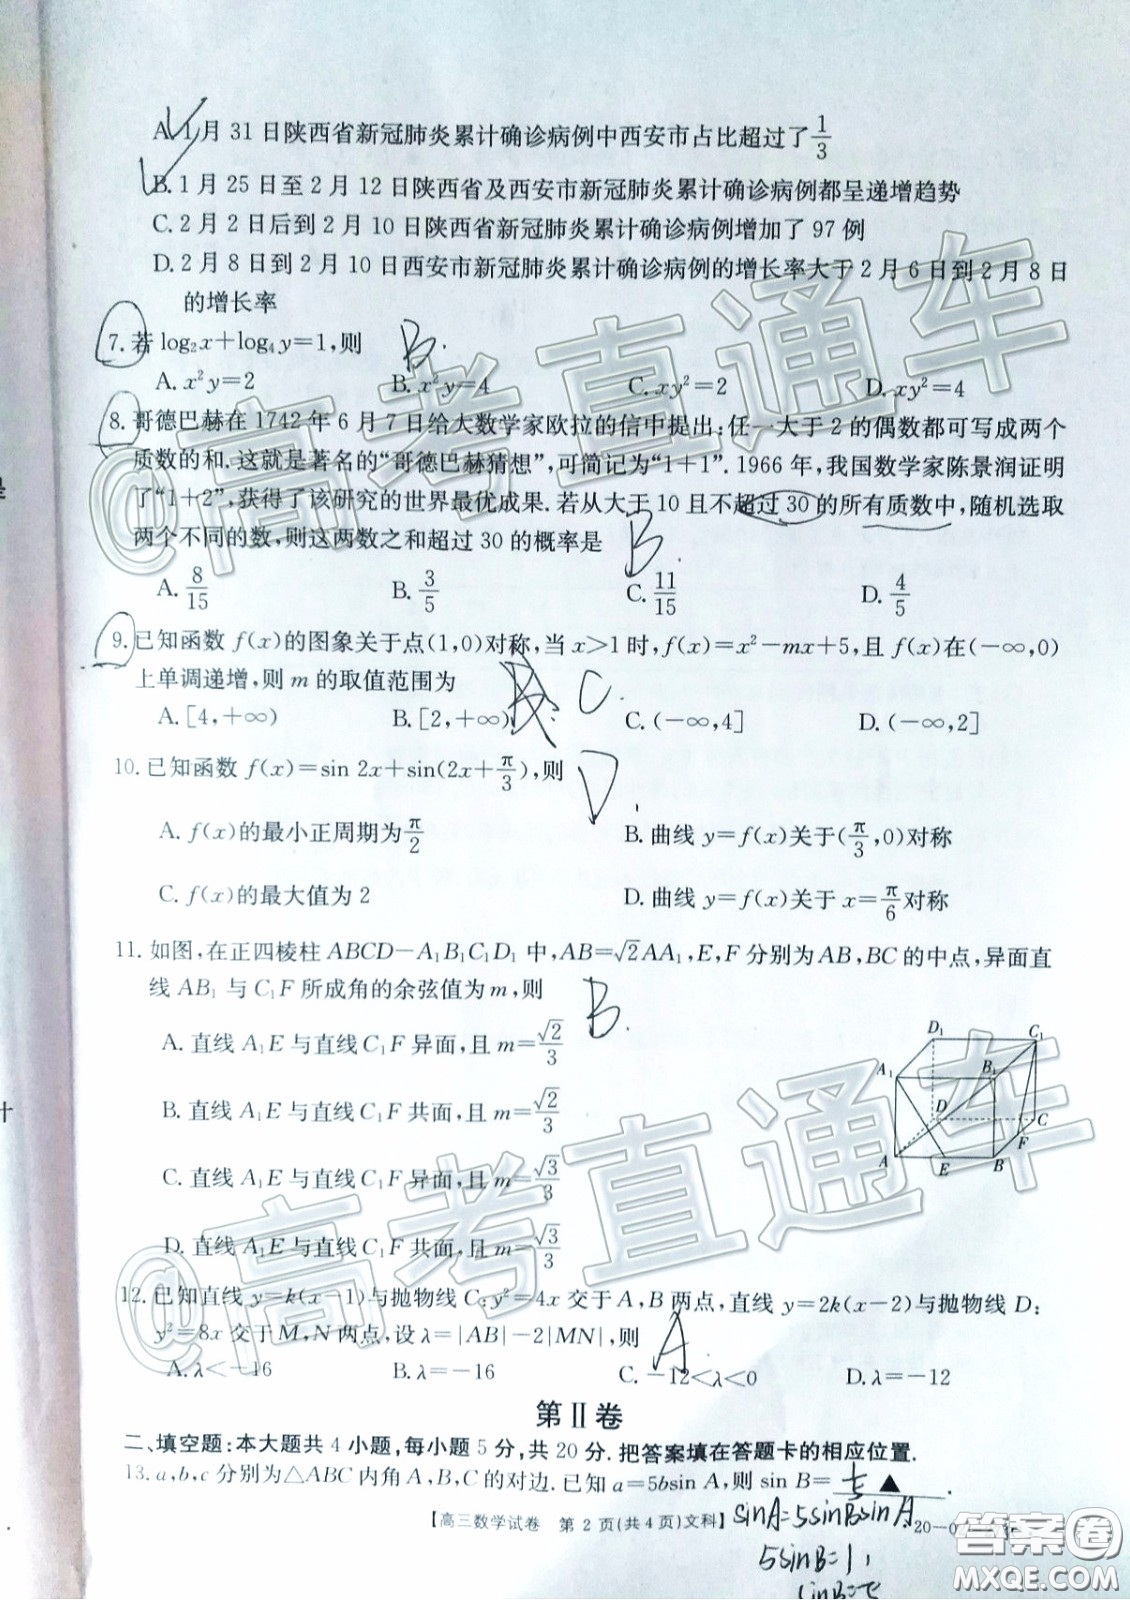 A. 1月31日陕西省新冠肺炎累计确诊病例中西安市占比超过了1/3
B. 1月25日至2月12日陕西省及西安市新冠肺炎累计确诊病例都呈递增趋势
C. 2月2日后到2月10日陕西省新冠肺炎累计确诊病例增加了97例
D. 2月8日到2月10日西安市新冠肺炎累计确诊病例的增长率大于2月6日到2月8日
的增长率
7. 若 log₂x+log₄y=1,则 B.
A. x²y=2 B. x²y=4 C. xy²=2 D. xy²=4
8. 哥德巴赫在1742年6月7日给大数学家欧拉的信中提出:任一大于2的偶数都可写成两个
质数的和.这就是著名的“哥德巴赫猜想”,可简记为“1+1”. 1966年,我国数学家陈景润证明
了“1+2”,获得了该研究的世界最优成果. 若从大于10且不超过30的所有质数中,随机选取
两个不同的数,则这两数之和超过30的概率是 B.
A. 8/15 B. 3/5 C. 11/15 D. 4/5
9. 已知函数 f(x)的图象关于点(1,0)对称,当 x>1时,f(x)=x²-mx+5,且 f(x)在(-∞,0)
上单调递增,则 m 的取值范围为 C.
A. [4,+∞) B. [2,+∞) C. (-∞,4] D. (-∞,2]
10. 已知函数 f(x)=sin 2x+sin(2x+π/3),则 D.
A. f(x)的最小正周期为π/2 B. 曲线 y=f(x)关于(π/3,0)对称
C. f(x)的最大值为2 D. 曲线 y=f(x)关于 x=π/6对称
11. 如图,在正四棱柱 ABCD-A₁B₁C₁D₁ 中,AB=√2AA₁,E,F 分别为 AB,BC 的中点,异面直
线 AB₁ 与 C₁F 所成角的余弦值为 m,则 B.
A. 直线 A₁E 与直线 C₁F 异面,且 m=√2/3
B. 直线 A₁E 与直线 C₁F 共面,且 m=√2/3
C. 直线 A₁E 与直线 C₁F 异面,且 m=√3/3
D. 直线 A₁E 与直线 C₁F 共面,且 m=√3/3
D₁ C₁
A₁ B₁
D C
F
A E B
12. 已知直线 y=k(x-1)与抛物线 C:y²=4x 交于 A,B 两点,直线 y=2k(x-2)与抛物线 D:
y²=8x 交于 M,N 两点,设 λ=|AB|-2|MN|,则 A.
A. λ<-16 B. λ=-16 C. -12<λ<0 D. λ=-12
第Ⅱ卷
二、填空题:本大题共4小题,每小题5分,共20分.把答案填在答题卡的相应位置.
13. a,b,c 分别为△ABC 内角 A,B,C 的对边. 已知 a=5bsin A,则 sin B= ▲ .
【高三数学试卷 第2页(共4页)文科】
sinA=5sinBsinA
5sinB=1,
@高考直通车
@高考直通车
答案圈
MXQE.COM